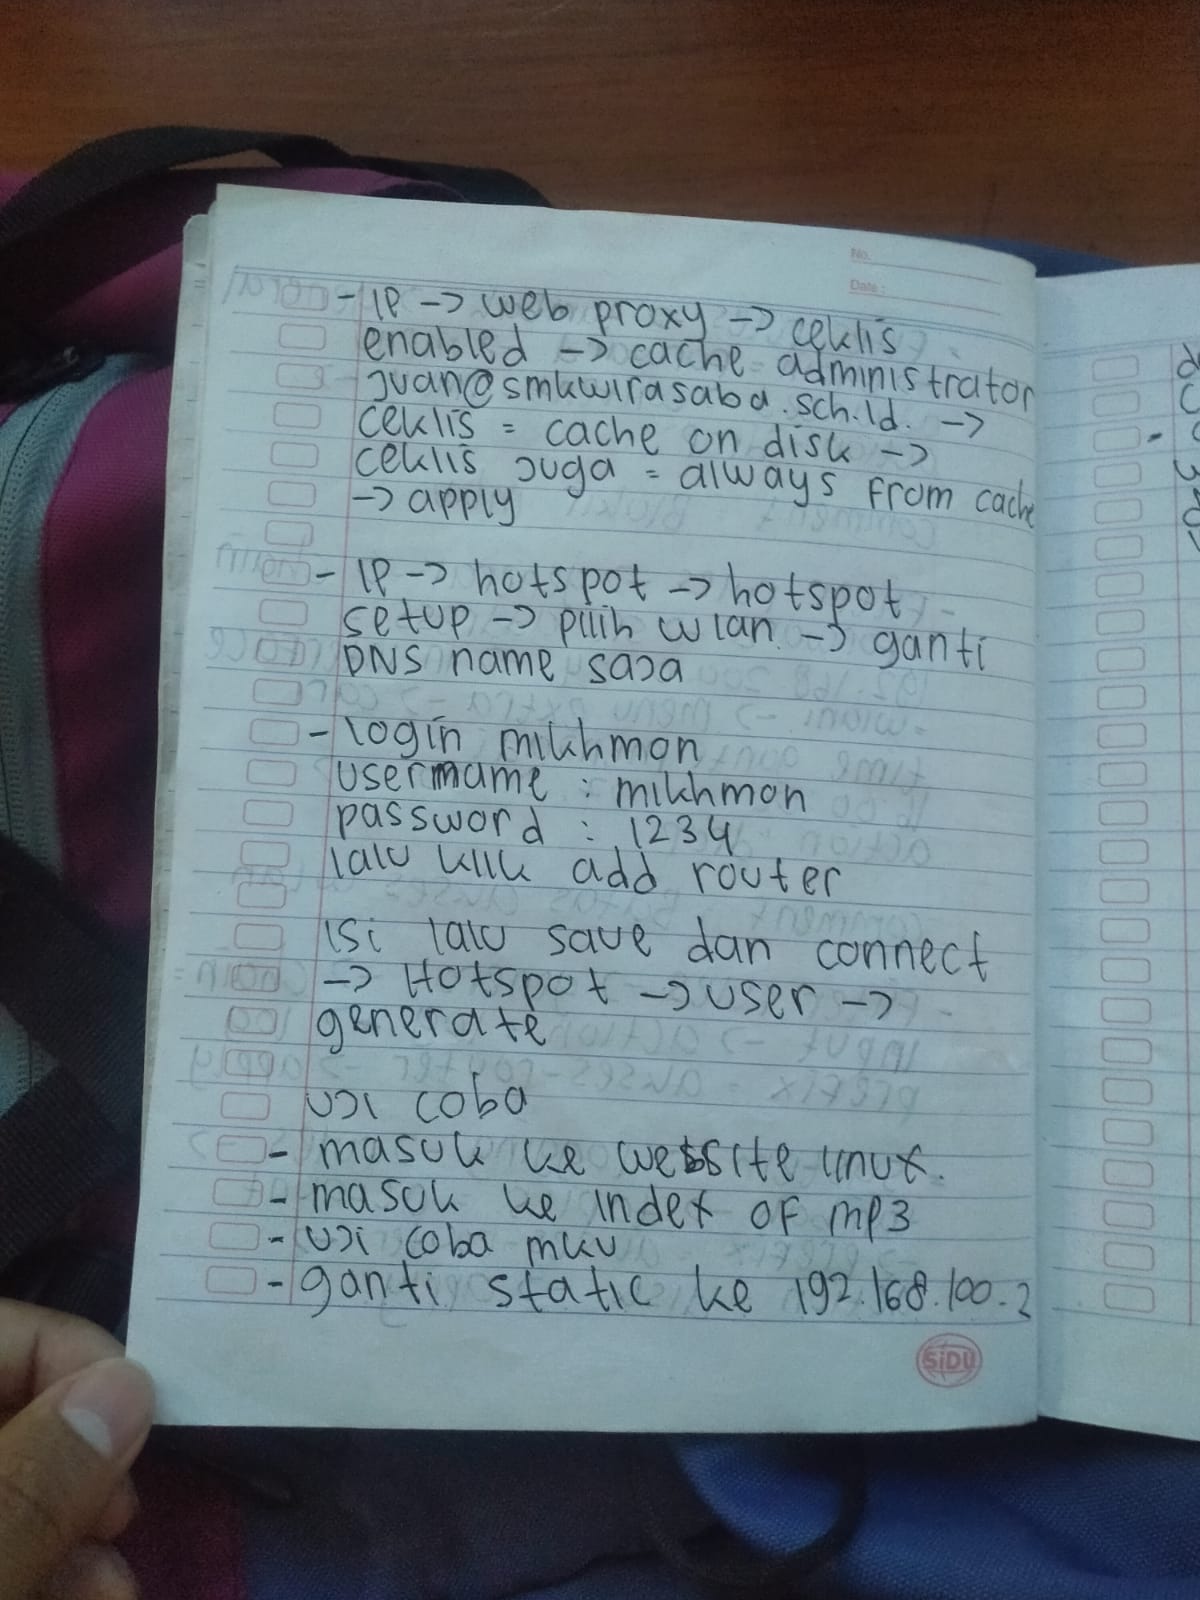 No.
Date :
- IP -> web proxy -> ceklis
enabled -> cache administrator
juan@smkwirasaba.sch.id. ->
ceklis = cache on disk ->
ceklis juga = always from cache
-> apply
- IP -> hotspot -> hotspot
setup -> pilih wlan -> ganti
DNS name saja
- login mikhmon
usermame : mikhmon
password : 1234
lalu klik add router
isi lalu save dan connect
-> Hotspot -> user ->
generate
uji coba
- masuk ke website linux.
- masuk ke index of mp3
- uji coba mkv
- ganti static ke 192.168.100.2
SiDU